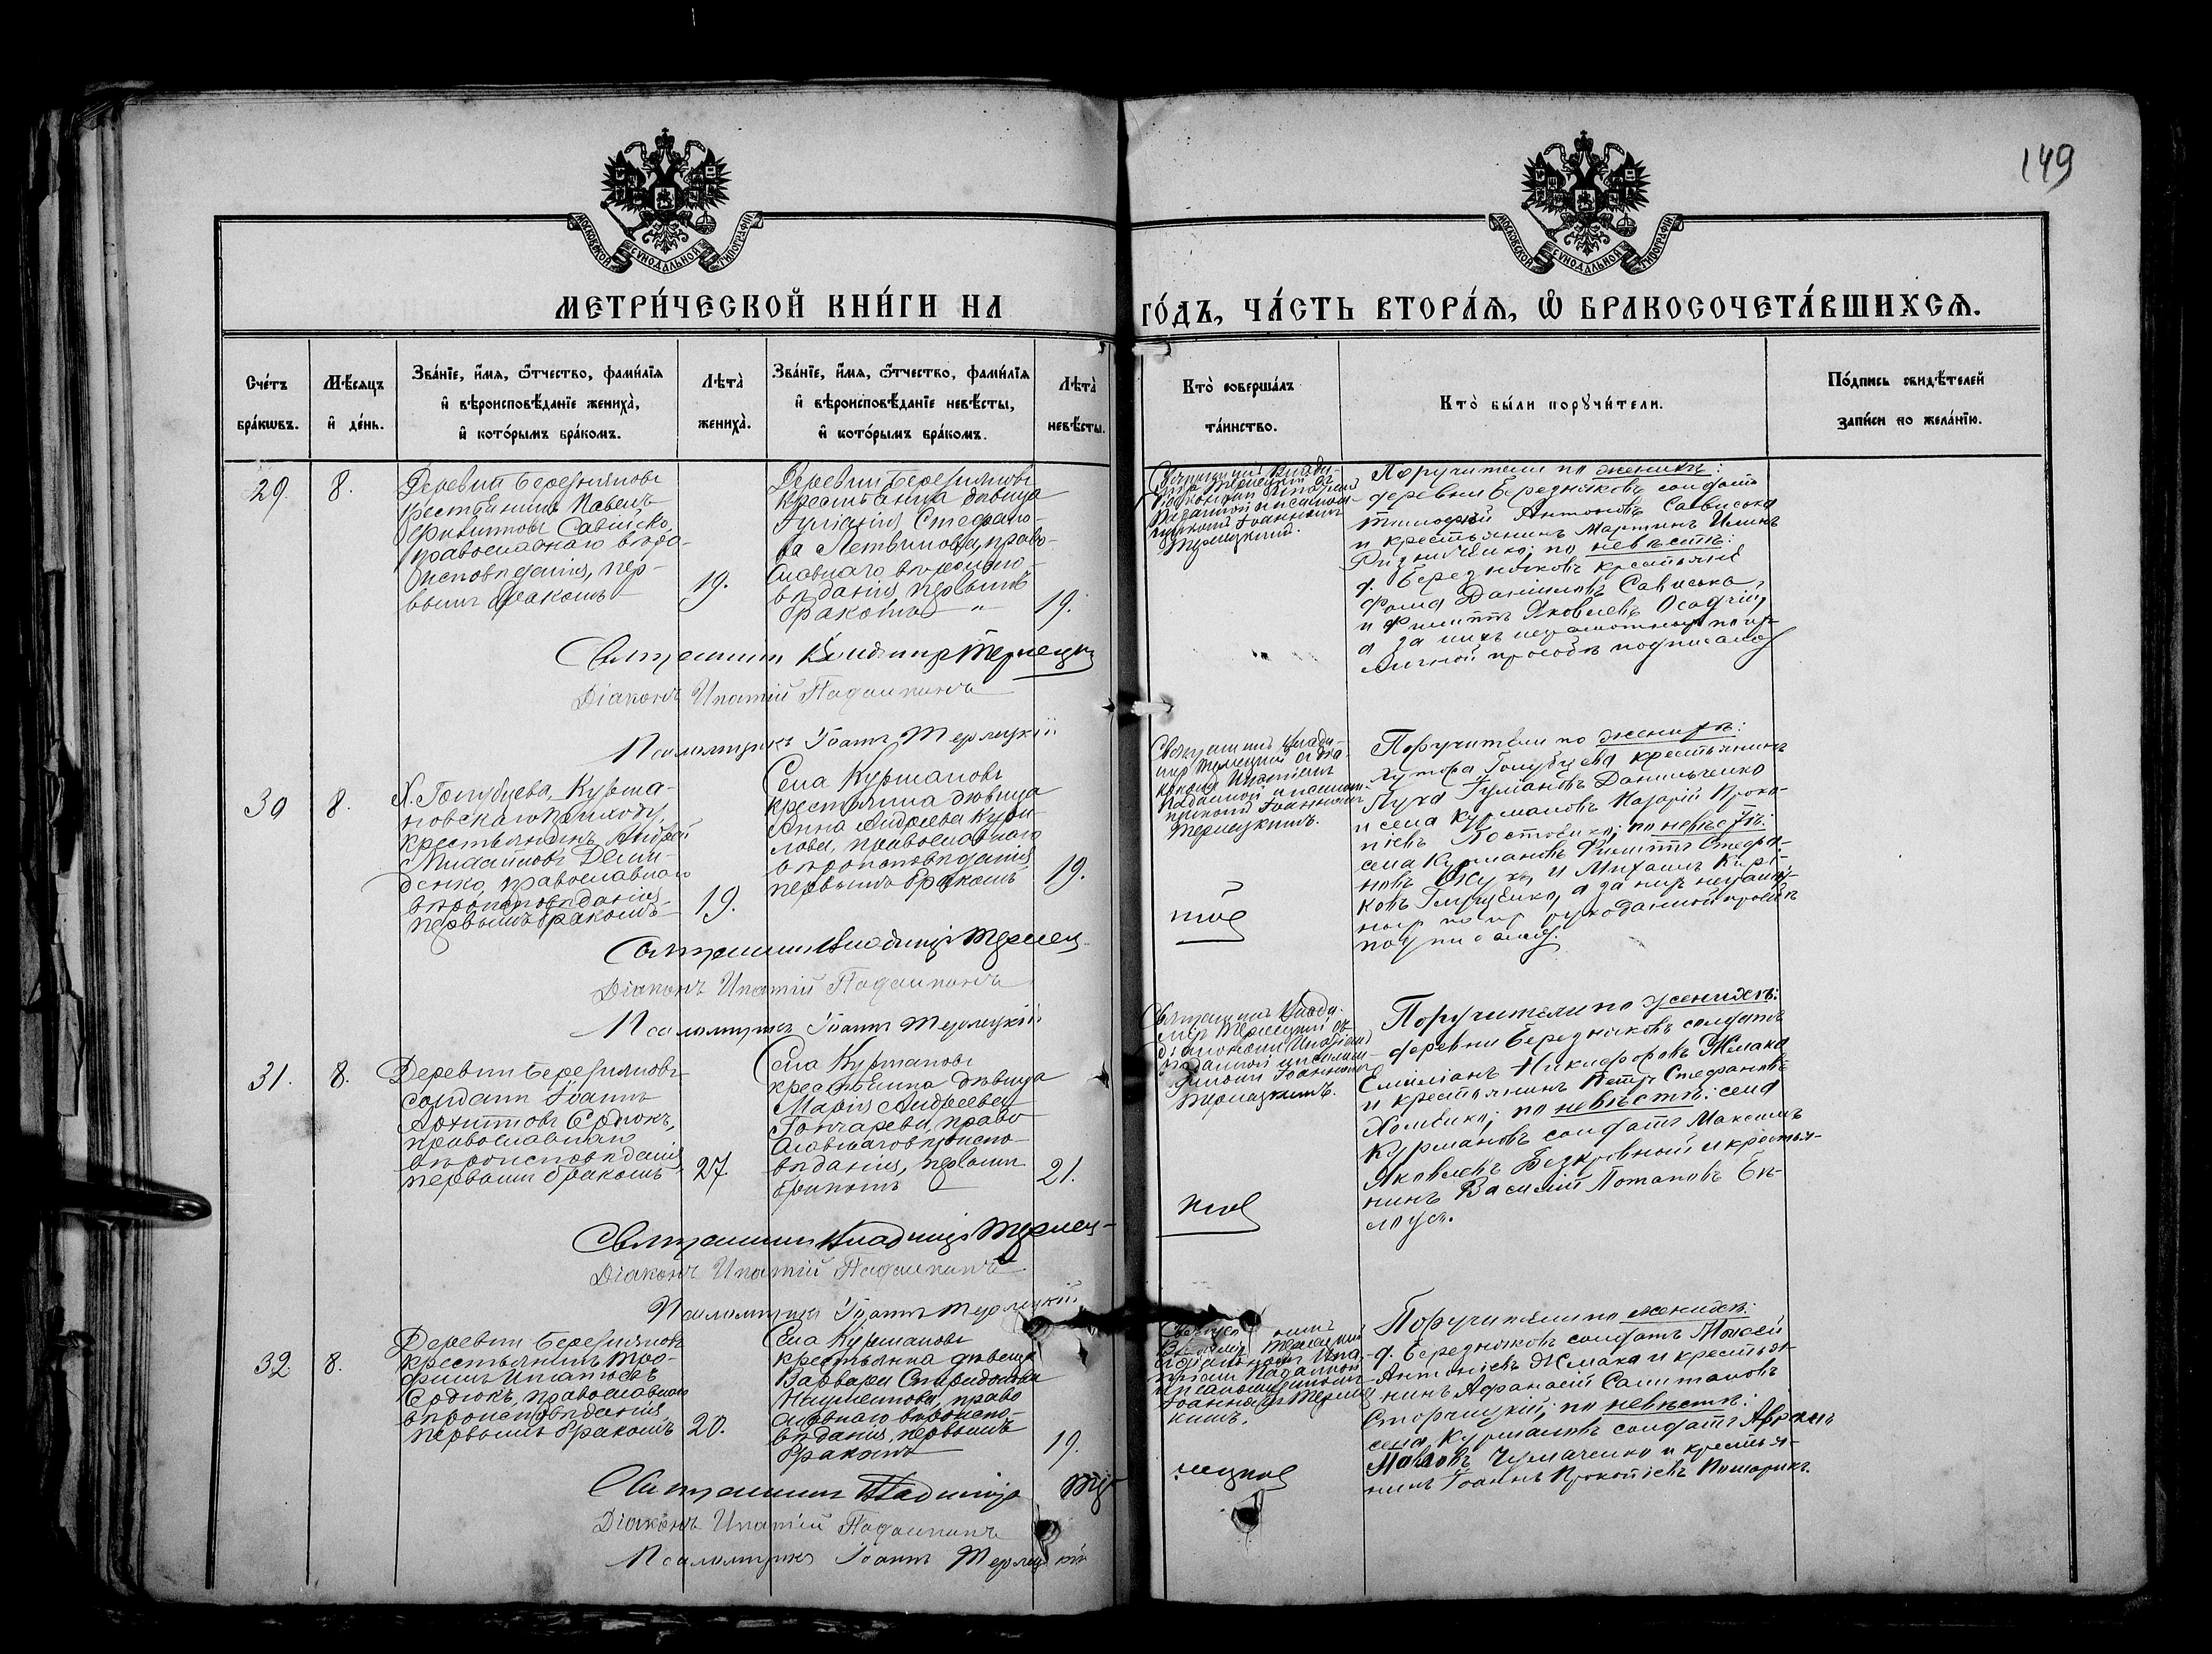 149
МОСКОВСКОЙ СѴНОДАЛЬНОЙ ТИПОГРАФІИ
МОСКОВСКОЙ СѴНОДАЛЬНОЙ ТИПОГРАФІИ
МЕТРИ́ЧЕСКОЙ КНИ́ГИ НА ГО́ДЪ, ЧА́СТЬ ВТОРА́Ѧ, Ѽ БРАКОСОЧЕТА́ВШИХСѦ.
Сче́тъ
бра́кѡвъ.
Мѣ́сѧцъ
и҆ де́нь.
Зва́нїе, и҆́мѧ, ѻ҆́тчество, фами́лїѧ
и҆ вѣроисповѣ́данїе жениха̀,
и҆ кото́рымъ бра́комъ.
Лѣта̀
жениха̀.
Зва́нїе, и҆́мѧ, ѻ҆́тчество, фами́лїѧ
и҆ вѣроисповѣ́данїе невѣ́сты,
и҆ кото́рымъ бра́комъ.
Лѣта̀
невѣ́сты.
Кто̀ соверша́лъ
та́инство.
Кто̀ бы́ли порꙋчи́тели.
По́дпись свидѣ́телей
за́писи по жела́нїю.
29.
8.
Деревни Бередняковъ
крестьянинъ Павелъ
Филипповъ Сависко,
православнаго вѣро-
исповѣданія, пер-
вымъ бракомъ
19.
Деревни Бередняковъ
крестьянка дѣвица
Стефано-
ва Летвинова, право-
славнаго вѣроиспо-
вѣданія, первымъ
бракомъ
19.
Священникъ Влади-
міръ Терлецкій съ
діакономъ Ипатіемъ
Падалкой и псалом-
щикомъ Іоанномъ
Терлецкимъ.
Поручители по женихѣ:
деревни Бередняковъ солдатъ
Тимофей Антоновъ Сависька
и крестьянинъ Мартинъ Ильинъ
Ридниченко; по невѣстѣ:
д. Бередняковъ крестьяне
Фома Даниловъ Сависька
и Филиппъ Яковлевъ Осадчій,
а за нихъ неграмотныхъ по их
личной просьбѣ подписался
Священникъ Владиміръ Терлецкій
Діаконъ Ипатій Падалка
Псаломщикъ Іоаннъ Терлецкій
30
8.
Х. Голубцева, Курма-
новскаго приходу,
крестьянинъ Андрей
Михайловъ Деми-
денко, православнаго
вѣроисповѣданія
первымъ бракомъ
19.
Села Курмановъ
крестьянка дѣвица
Анна Андреева Кури-
лова, православнаго
вѣроисповѣданія
первымъ бракомъ
19.
Священникъ Влади-
міръ Терлецкій съ діа-
кономъ Ипатіемъ
Падалкой и псалом-
щикомъ Іоанномъ
Терлецкимъ.
Поручители по женихѣ:
хутора Голубцева крестьянинъ
Лука Данильченко
и села Курмановъ Назарій Проко-
піевъ по невѣстѣ:
села Курмановъ Филиппъ Стефа-
новъ и Михаилъ Кирі-
ковъ а за нихъ неграмот-
ныхъ по их рукоданной просьбѣ
подписался
Священникъ Владиміръ Терлец-
кій
Діаконъ Ипатій Падалка
Псаломщикъ Іоаннъ Терлецкій
31.
8.
Деревни Бередняковъ
солдатъ Іоаннъ
Архиповъ Сердюкъ,
православнаго
вѣроисповѣданія,
первымъ бракомъ
27
Села Курмановъ
крестьянка дѣвица
Марія Андреева
Гончарева, право-
славнаго вѣроиспо-
вѣданія, первымъ
бракомъ
21.
Священникъ Влади-
міръ Терлецкій съ
діакономъ Ипатіемъ
Падалкой и псалом-
щикомъ Іоанномъ
Терлецкимъ.
Поручители по женихѣ:
деревни Бередняковъ солдатъ
Емиліанъ Никифоровъ Жмака
и крестьянинъ Петръ Стефановъ
Хоменко; по невѣстѣ: села
Курмановъ солдатъ Максимъ
Яковлевъ Безкровный и крестья-
нинъ Василій Потаповъ Бѣ-
лоусъ.
Священникъ Владиміръ Терлец-
кій
Діаконъ Ипатій Падалка
Псаломщикъ Іоаннъ Терлецкій
32.
8.
Деревни Бередняковъ
крестьянинъ Тро-
фимъ Игнатіевъ
Сердюкъ, православнаго
вѣроисповѣданія
первымъ бракомъ
20.
Села Курмановъ
крестьянка дѣвица
Варвара Спиридонова
Науменкова, право-
славнаго вѣроиспо-
вѣданія, первымъ
бракомъ
19.
Терлецкій
Поручители по женихѣ:
д. Бередняковъ солдатъ Моисей
Антоніевъ Жмака и крестья-
нинъ Афанасій
по невѣстѣ:
села Курмановъ солдатъ Авраамъ
Чумаченко и крестья-
нинъ Іоаннъ Прокопіевъ
Священникъ Владиміръ Тер-
лецкій
Діаконъ Ипатій Падалка
Псаломщикъ Іоаннъ Терлецкій